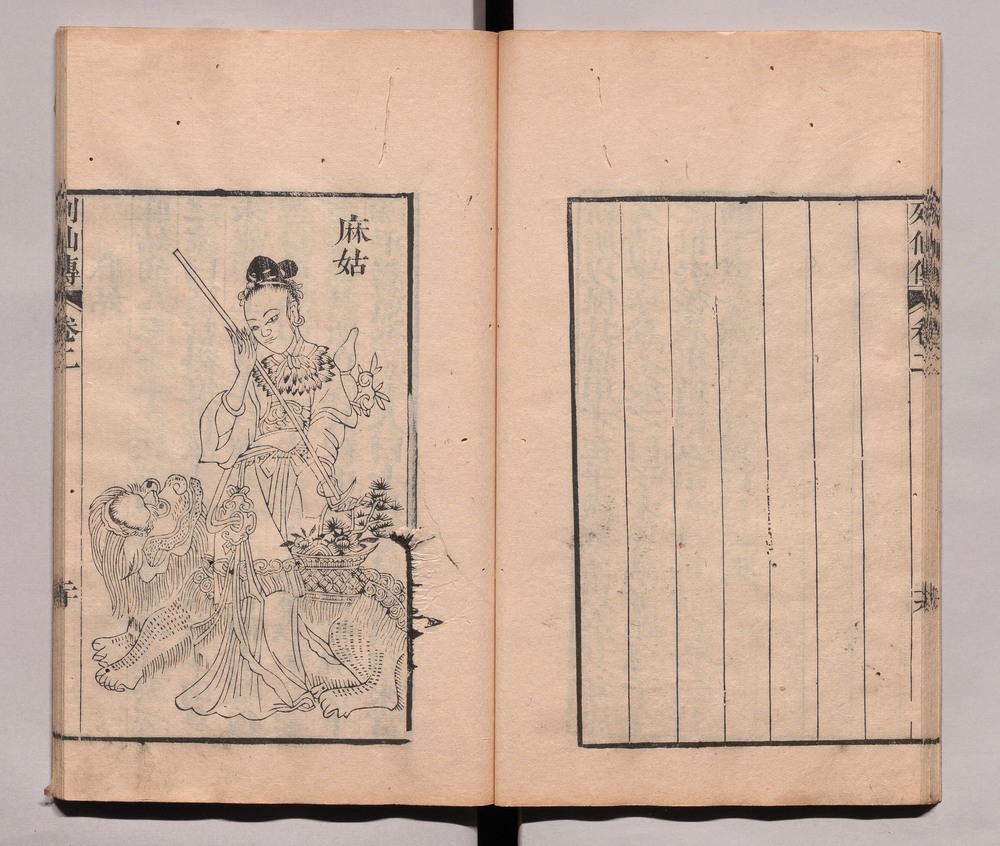 列仙傳
卷二
麻姑
列仙傳
卷二